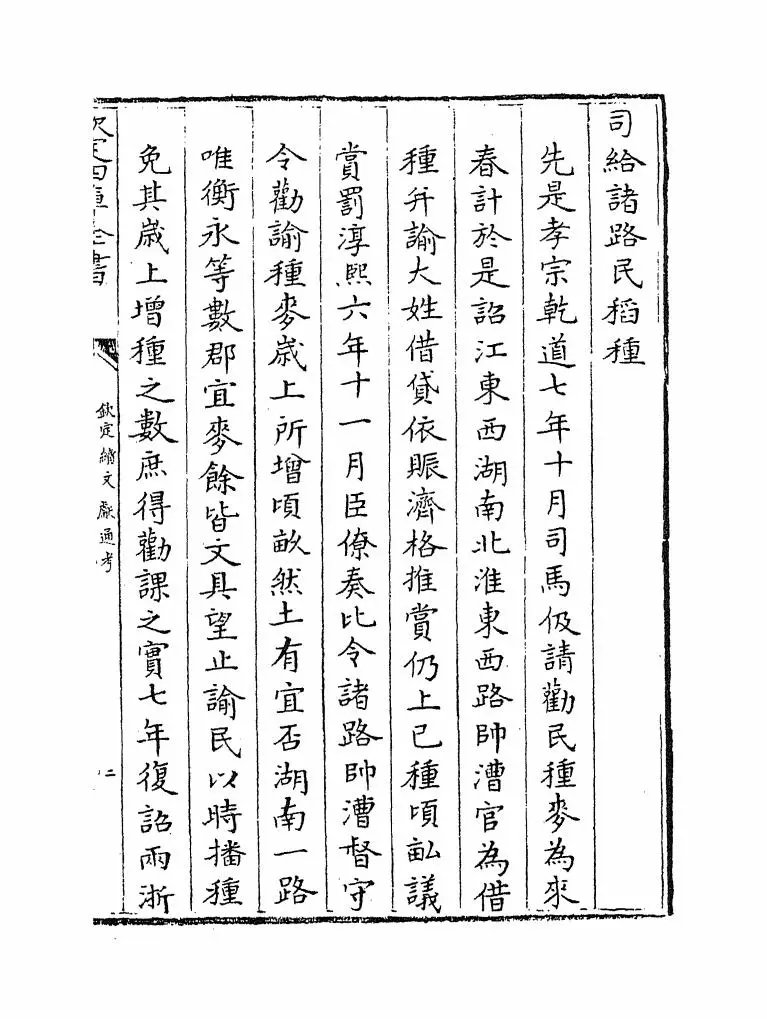 司給諸路民稻種
先是孝宗乾道七年十月司馬伋請勸民種麥為來
春計於是詔江東西湖南北淮東西路帥漕官為借
種并諭大姓借貸依賑濟格推賞仍上已種頃畝議
賞罰淳熙六年十一月臣僚奏比令諸路帥漕督守
令勸諭種麥歲上所增頃畝然土有宜否湖南一路
唯衡永等數郡宜麥餘皆文具望止諭民以時播種
免其歲上增種之數庶得勸課之實七年復詔兩浙
欽定四庫全書
欽定續文獻通考
二